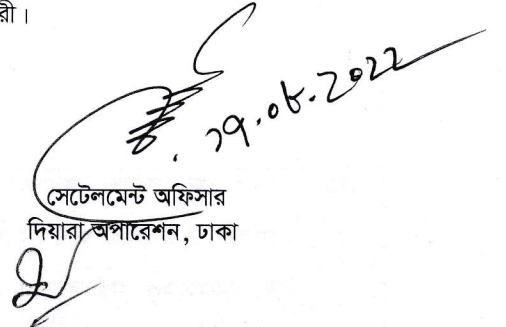 রী।
১৭.০৮.2022
সেটেলমেন্ট অফিসার
দিয়ারা অপারেশন, ঢাকা